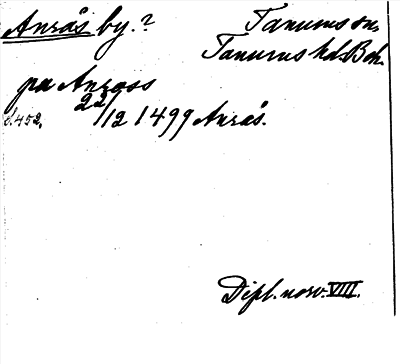 Anrås by.? Tanums sn,
Tanums hd. Boh.
pa Anrass
s. 452. 22/12 1499 Anrås.
Dipl. norv. VIII.